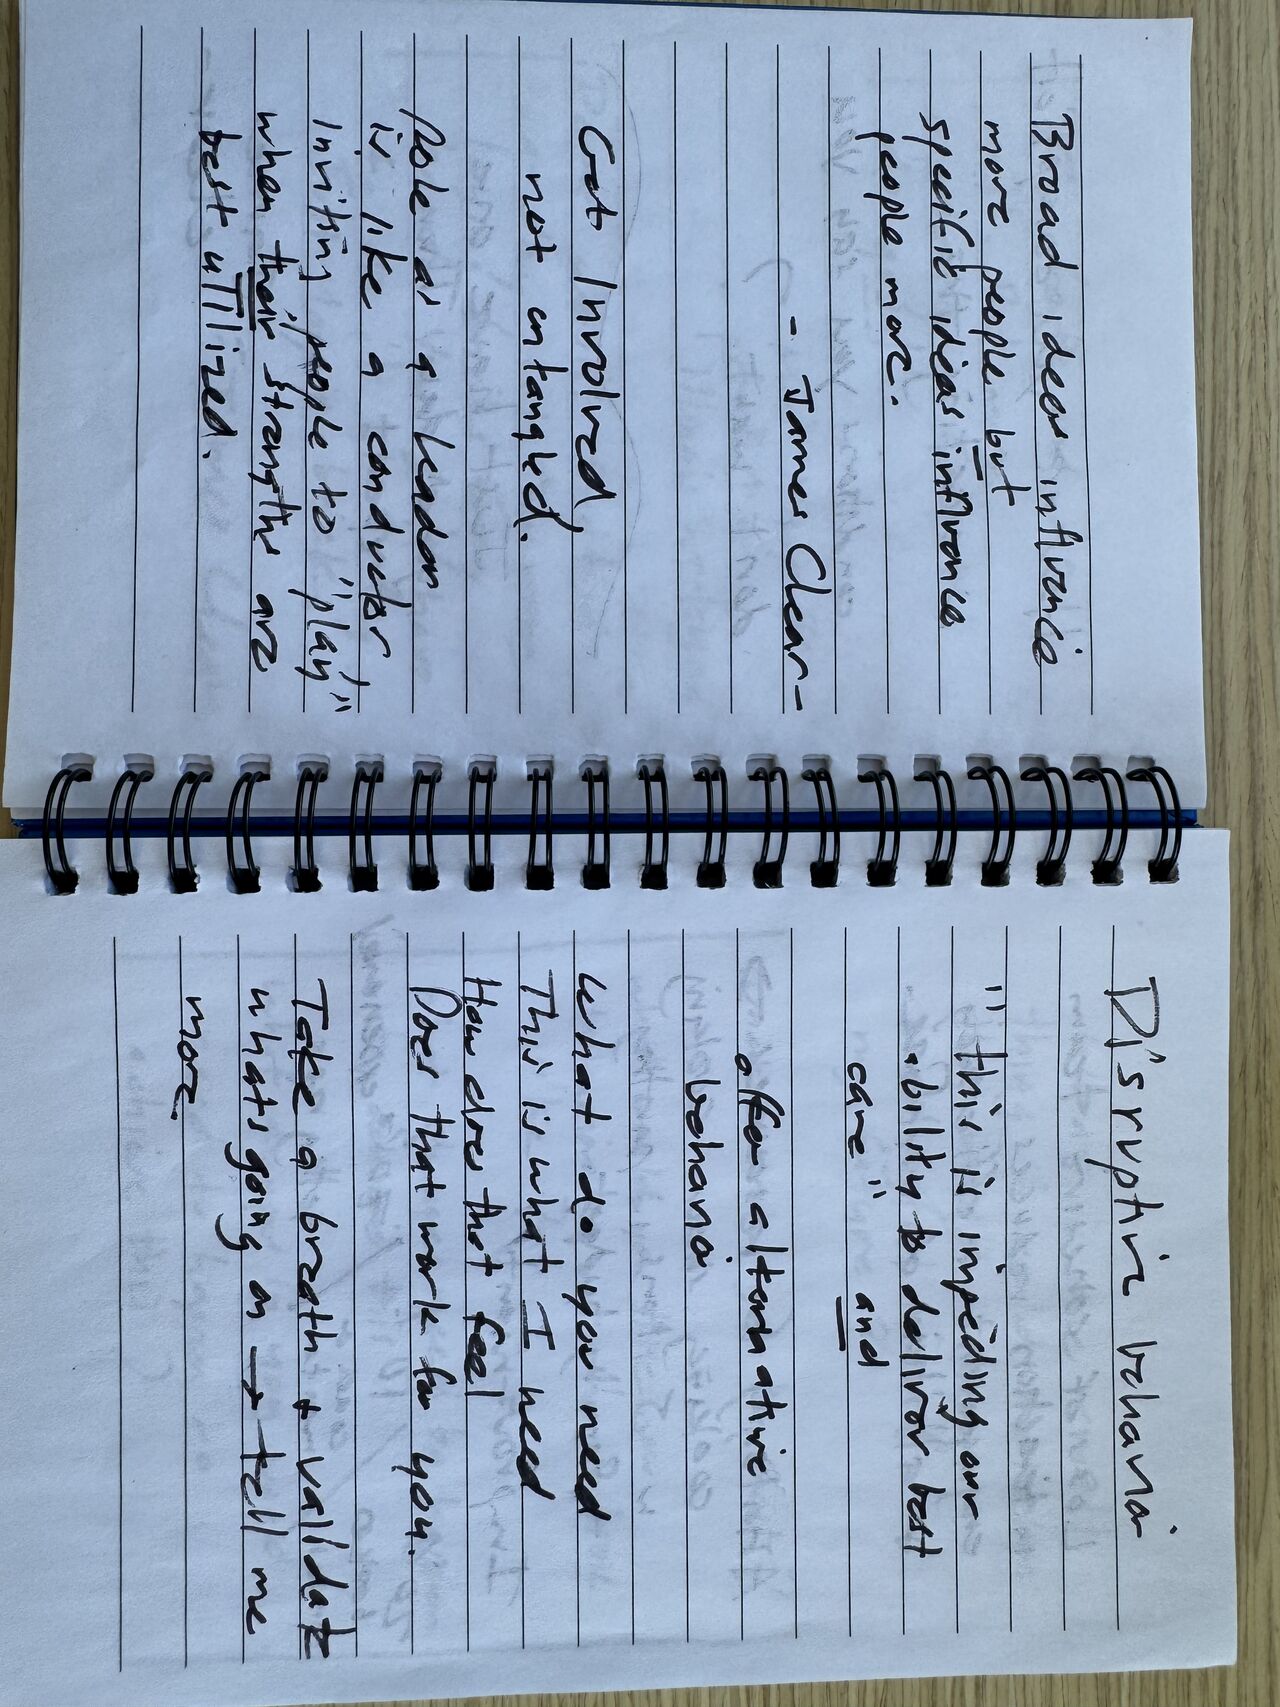 Broad ideas influence
more people but
specific ideas influence
people more.
- James Clear-
Get Involved,
not entangled.
Role as a leader
is like a conductor
Inviting people to "play"
when their strengths are
best utilized.
Disruptive behavior
"this is impeding our
ability to deliver best
care" and
offer alternative
behavior
What do you need
This is what I need
How does that feel
Does that work for you.
Take a breath + validate
whats going on → tell me
more